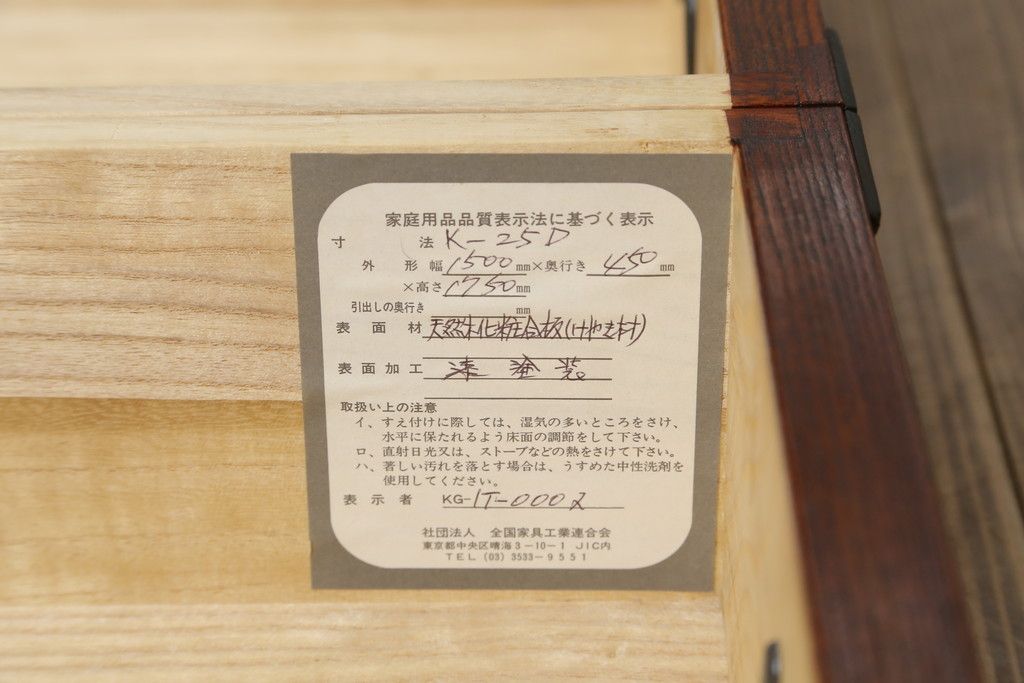 家庭用品品質表示法に基づく表示
寸 法 K-25D
外 形 幅 1500 mm×奥行き 450 mm
×高さ 1750 mm
引出しの奥行き mm
表 面 材 天然木化粧合板(けやき材)
表面加工 漆 塗 装。
取扱い上の注意
イ、すえ付けに際しては、湿気の多いところをさけ、
水平に保たれるよう床面の調節をして下さい。
ロ、直射日光又は、ストーブなどの熱をさけて下さい。
ハ、著しい汚れを落とす場合は、うすめた中性洗剤を
使用してください。
表 示 者 KG-IT-0002
社団法人 全国家具工業連合会
東京都中央区晴海3-10-1 JIC内
TEL (03) 3533-9551